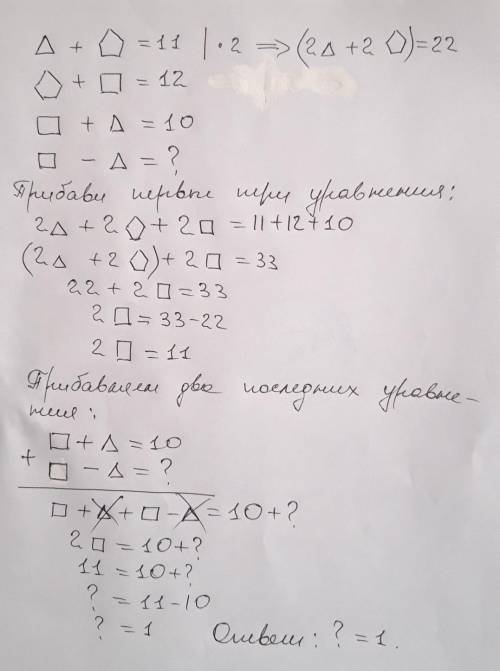 △ + ⬠ = 11 | · 2 ⟹ (2△ + 2⬠) = 22
⬠ + □ = 12
□ + △ = 10
□ − △ = ?
Прибави первые три уравнения:
2△ + 2⬠ + 2□ = 11+12+10
(2△ + 2⬠) + 2□ = 33
22 + 2□ = 33
2□ = 33-22
2□ = 11
Прибавляем два последних уравне-
ния:
□ + △ = 10
+
□ − △ = ?
□ + △ + □ − △ = 10 + ?
2□ = 10+?
11 = 10+?
? = 11-10
? = 1 Ответ: ? = 1.